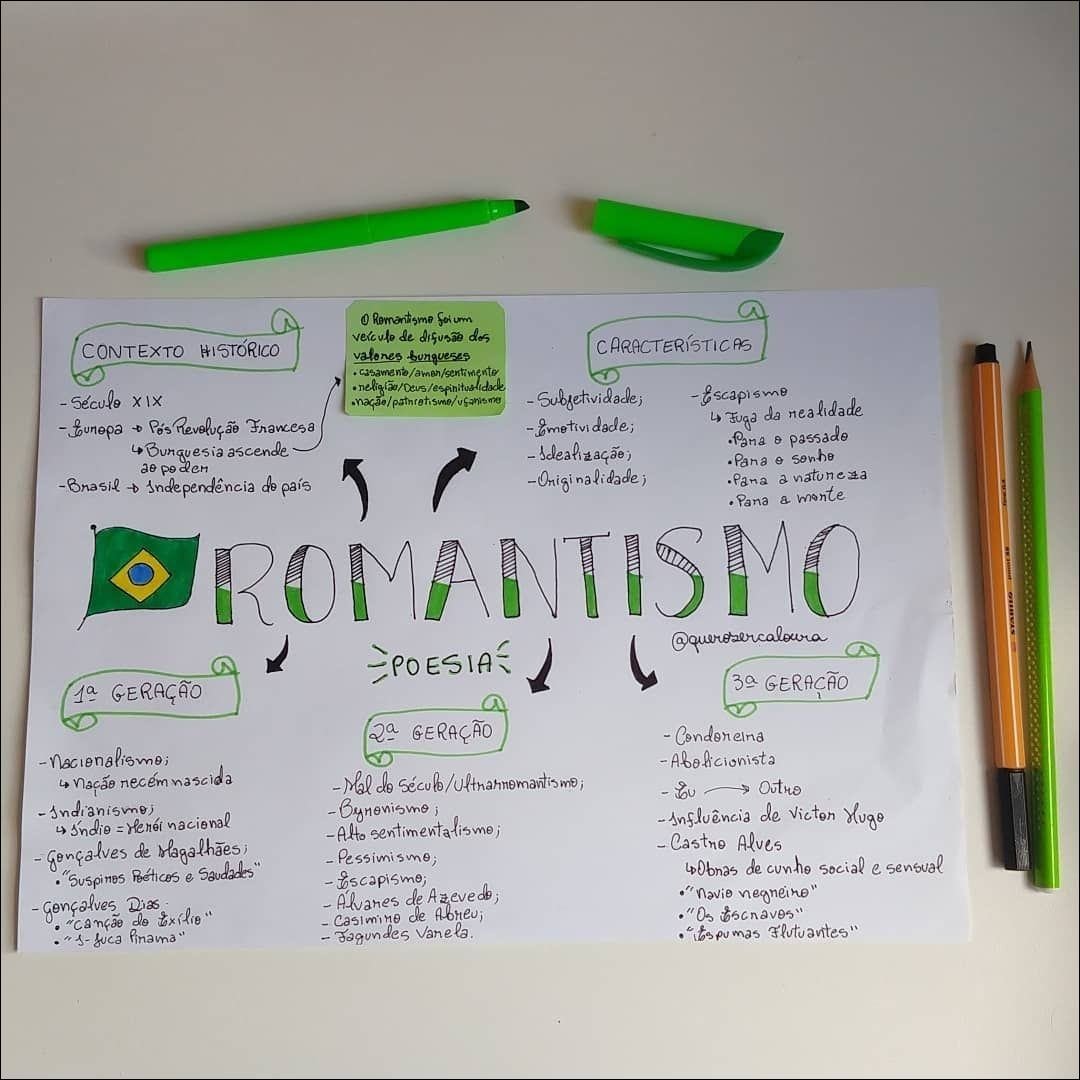 CONTEXTO HISTÓRICO
- Século XIX
- Europa → Pós Revolução Francesa
↳ Burguesia ascende
ao poder
- Brasil → Independência do país
O Romantismo foi um
veículo de difusão dos
valores burgueses
• casamento/amor/sentimento
• religião/Deus/espiritualidade
• nação/patriotismo/ufanismo
CARACTERÍSTICAS
- Subjetividade;
- Emotividade;
- Idealização;
- Originalidade;
- Escapismo
↳ Fuga da realidade
• Para o passado
• Para o sonho
• Para a natureza
• Para a morte
ROMANTISMO
@querosercaloura
POESIA
1ª GERAÇÃO
- Nacionalismo;
↳ Nação recém nascida
- Indianismo;
↳ Índio = Herói nacional
- Gonçalves de Magalhães;
• "Suspiros Poéticos e Saudades"
- Gonçalves Dias:
• "Canção do Exílio"
• "I-Juca Pirama"
2ª GERAÇÃO
- Mal do Século/Ultrarromantismo;
- Byronismo;
- Alto sentimentalismo;
- Pessimismo;
- Escapismo;
- Álvares de Azevedo;
- Casimiro de Abreu;
- Fagundes Varela.
3ª GERAÇÃO
- Condoreira
- Abolicionista
- Eu → Outro
- Influência de Victor Hugo
- Castro Alves
↳ Obras de cunho social e sensual
• "Navio negreiro"
• "Os Escravos"
• "Espumas Flutuantes"
STABILO